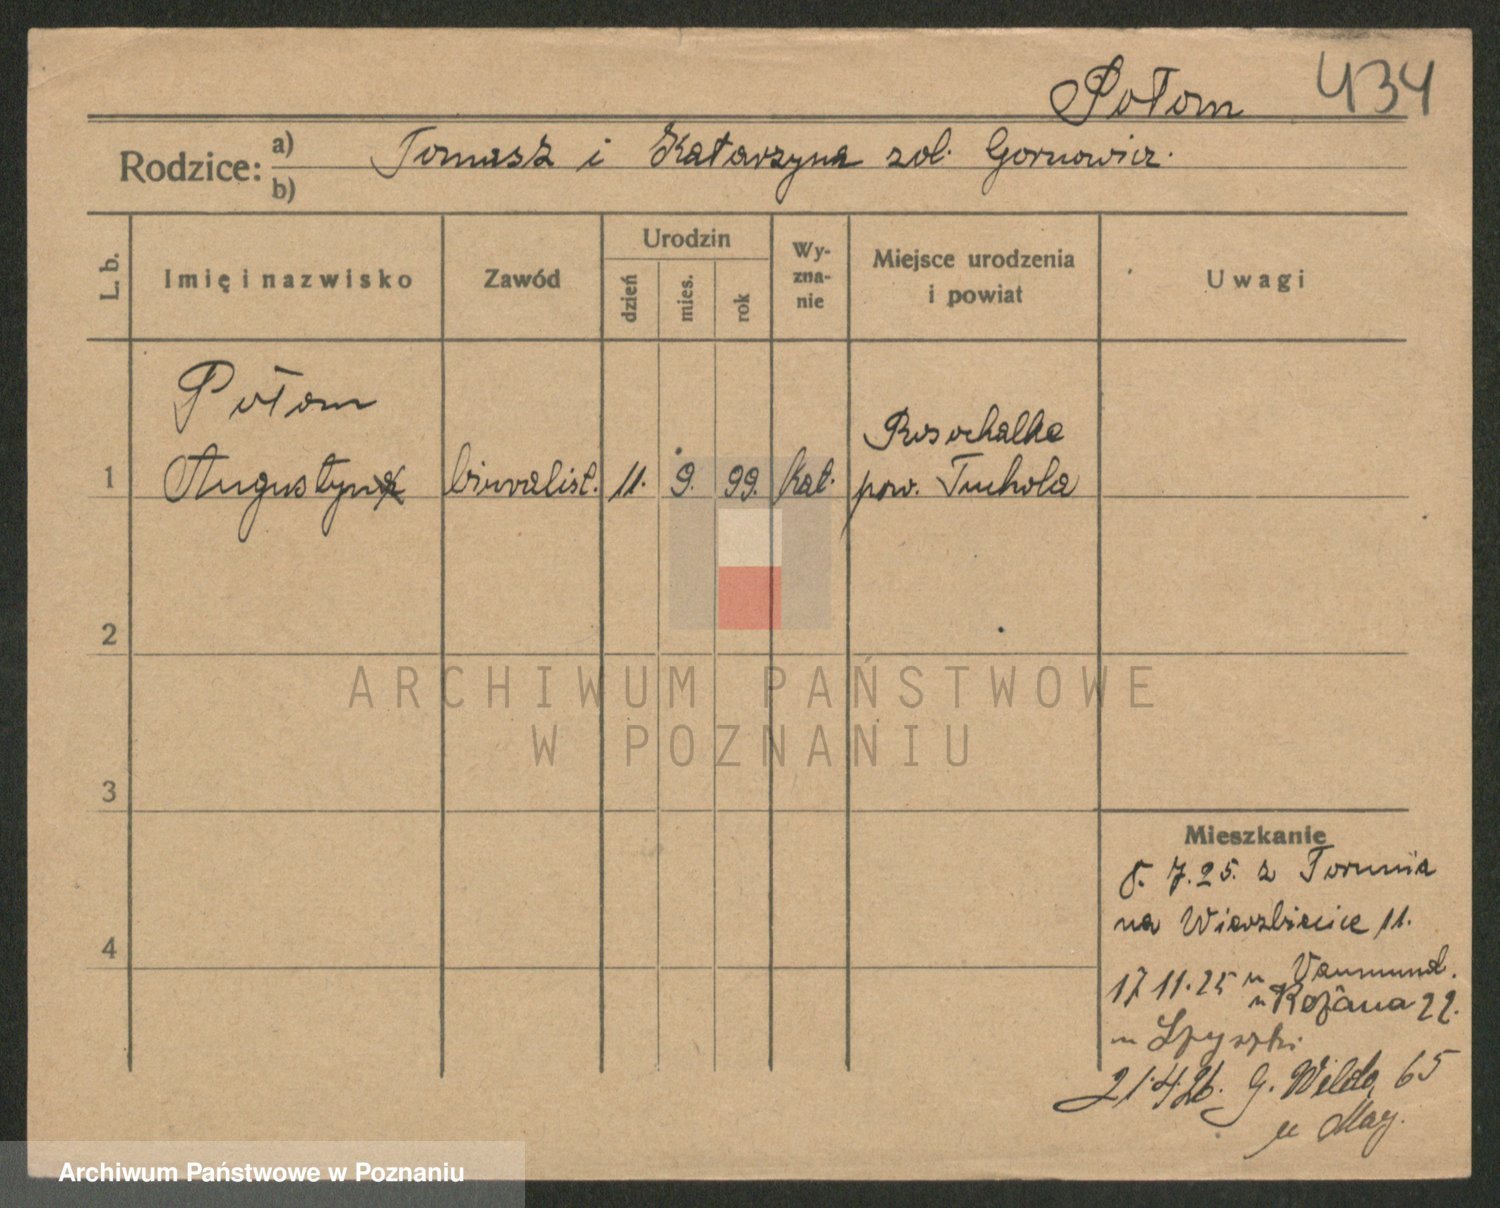 Połom 434
Rodzice: a) Tomasz i Katarzyna zol. Gornowicz.
b)
L. b. Imię i nazwisko Zawód Urodzin dzień mies. rok Wy-zna-nie Miejsce urodzenia i powiat Uwagi
Połom
Rosochatka
1 Augustyn biuralist. 11. 9. 99. kat. pow. Tuchola
2
3
4
Mieszkanie
8. 7. 25. z Torunia
na Wierzbiecice 11.
17 11. 25 u
Różana 22.
u
21.4 26. G. Wilda 65
u May.
ARCHIWUM PAŃSTWOWE
W POZNANIU
Archiwum Państwowe w Poznaniu